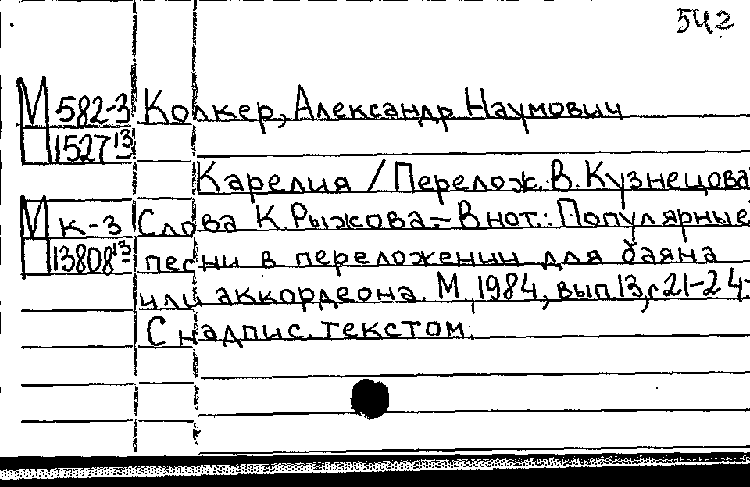 542
М 582-3 Колкер, Александр Наумович
1527 13
Карелия / Перелож. В. Кузнецова
М К-3 Слова К. Рыжова.- В нот.: Популярные
13808 13 песни в переложении для баяна
или аккордеона. М, 1984, вып 13, с 21-24.
С надпис. текстом.